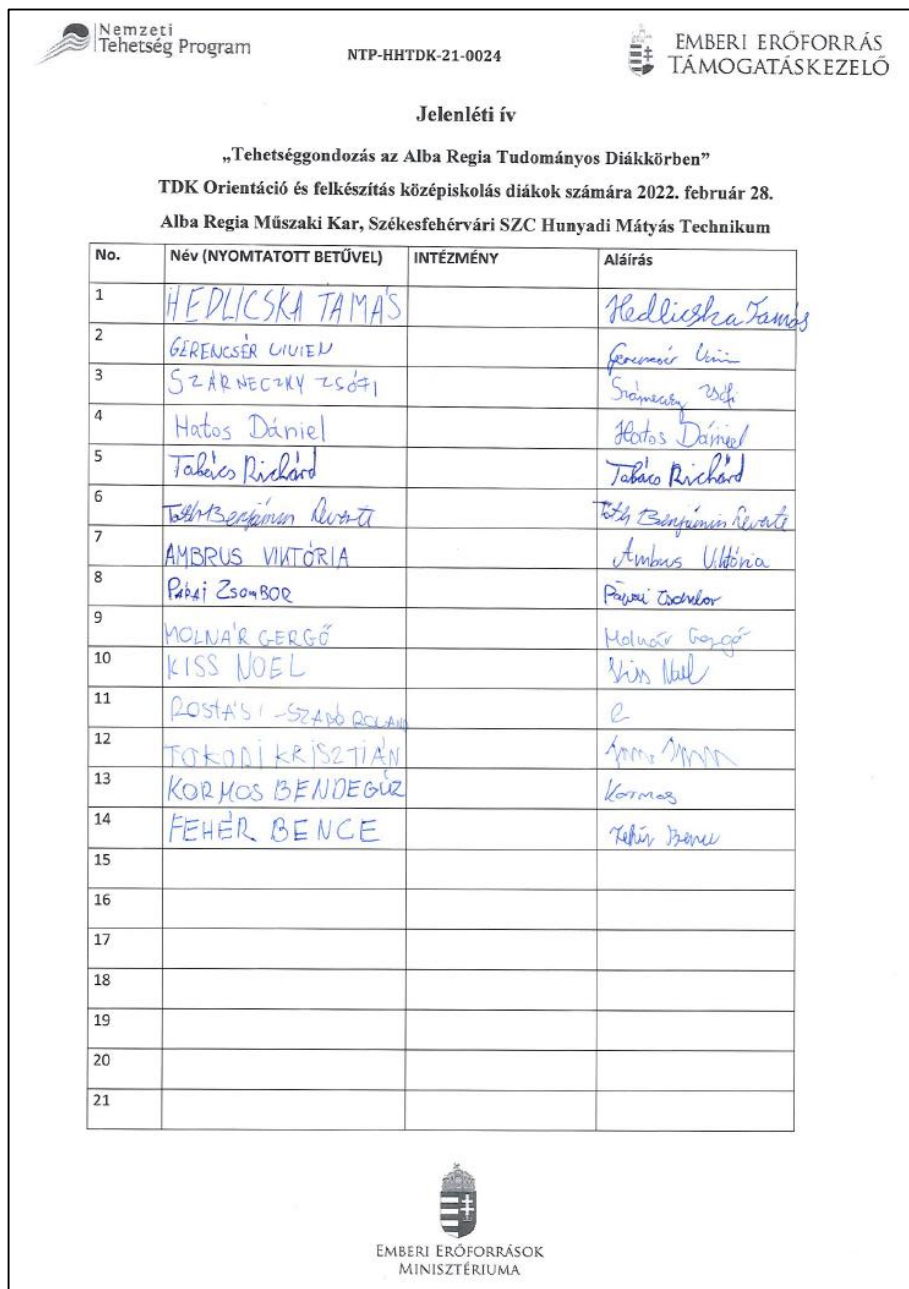 Nemzeti
Tehetség Program
NTP-HHTDK-21-0024
EMBERI ERŐFORRÁS
TÁMOGATÁSKEZELŐ
Jelenléti ív
„Tehetséggondozás az Alba Regia Tudományos Diákkörben”
TDK Orientáció és felkészítás középiskolás diákok számára 2022. február 28.
Alba Regia Műszaki Kar, Székesfehérvári SZC Hunyadi Mátyás Technikum
No. Név (NYOMTATOTT BETŰVEL) INTÉZMÉNY Aláírás
1 HEDLICSKA TAMÁS Hedlicska Tamás
2 GERENCSÉR VIVIEN Gerencsér
3 SZÁRNECZKY ZSÓFI Zsófi
4 Hatos Dániel Hatos Dániel
5 Takács Richárd Takács Richárd
6 Tóth Benjámin Levente Tóth Benjámin Levente
7 AMBRUS VIKTÓRIA Ambrus Viktória
8 PÁPAI ZSOMBOR Pápai Zsombor
9 MOLNÁR GERGŐ Molnár Gergő
10 KISS NOEL Kiss Noel
11 ROSTÁSI-SZABÓ ROLAND
12 TOKODI KRISZTIÁN
13 KORMOS BENDEGÚZ Kormos
14 FEHÉR BENCE Fehér Bence
15
16
17
18
19
20
21
EMBERI ERŐFORRÁSOK
MINISZTÉRIUMA